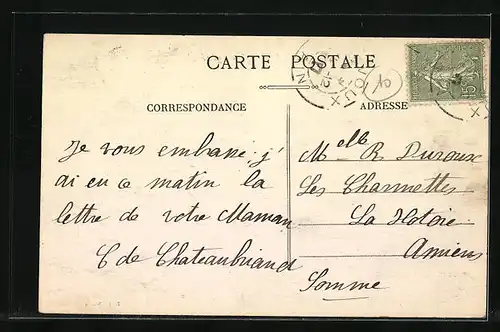 CARTE POSTALE
CORRESPONDANCE
ADRESSE
Je vous embrasse j'
ai eu ce matin la
lettre de votre Maman
C de Chateaubriand
Melle R. Duroux
Les Charmettes
La Hotoie
Amiens
Somme
15